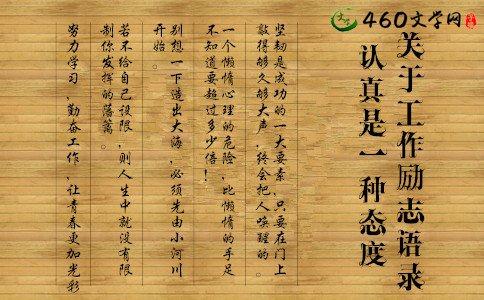 460文学网
关于工作励志语录
认真是一种态度
坚韧是成功的一大要素，只要在门上
敲得够久够大声，终会把人唤醒的。
一个懒惰心理的危险，比懒惰的手足
不知道要超过多少倍！
别想一下造出大海，必须先由小河川
开始。
若不给自己设限，则人生中就没有限
制你发挥的藩篱。
努力学习，勤奋工作，让青春更加光彩